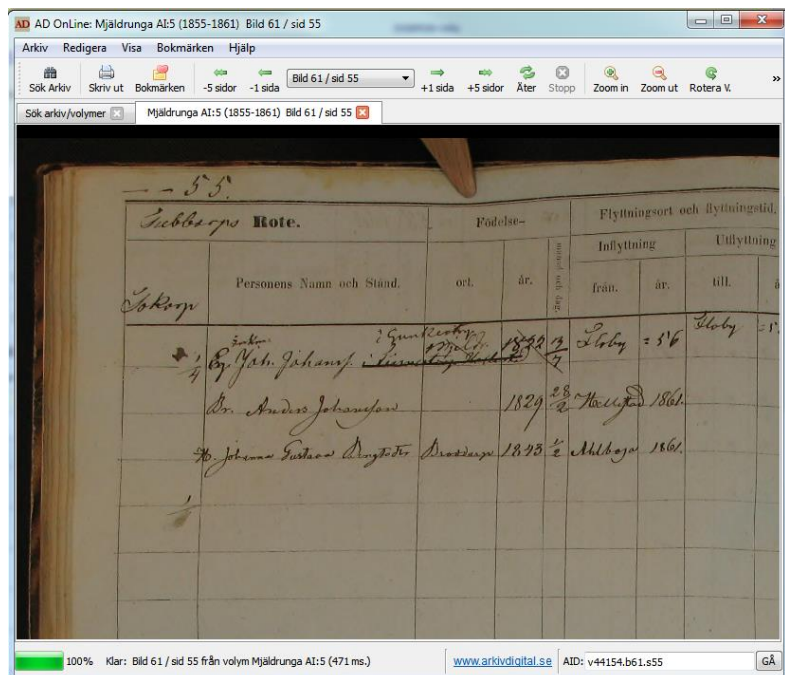 AD OnLine: Mjäldrunga AI:5 (1855-1861) Bild 61 / sid 55
Arkiv Redigera Visa Bokmärken Hjälp
Bild 61 / sid 55
Sök Arkiv Skriv ut Bokmärken -5 sidor -1 sida +1 sida +5 sidor Åter Stopp Zoom in Zoom ut Rotera V. »
Sök arkiv/volymer Mjäldrunga AI:5 (1855-1861) Bild 61 / sid 55
- - 55.
Rote. Födelse- Flyttningsort och flyttningstid.
Inflyttning Utflyttning
Personens Namn och Stånd. ort. år. månad och dag. från. år. till. å
1/4 Joh. Johanss. 1822 Floby = 56 Floby
Br. Anders Johansson 1829 28/2 1861.
H. Johanna Gustava 1843 1/2 Ahlboga 1861.
100% Klar: Bild 61 / sid 55 från volym Mjäldrunga AI:5 (471 ms.) www.arkivdigital.se AID: v44154.b61.s55 GÅ